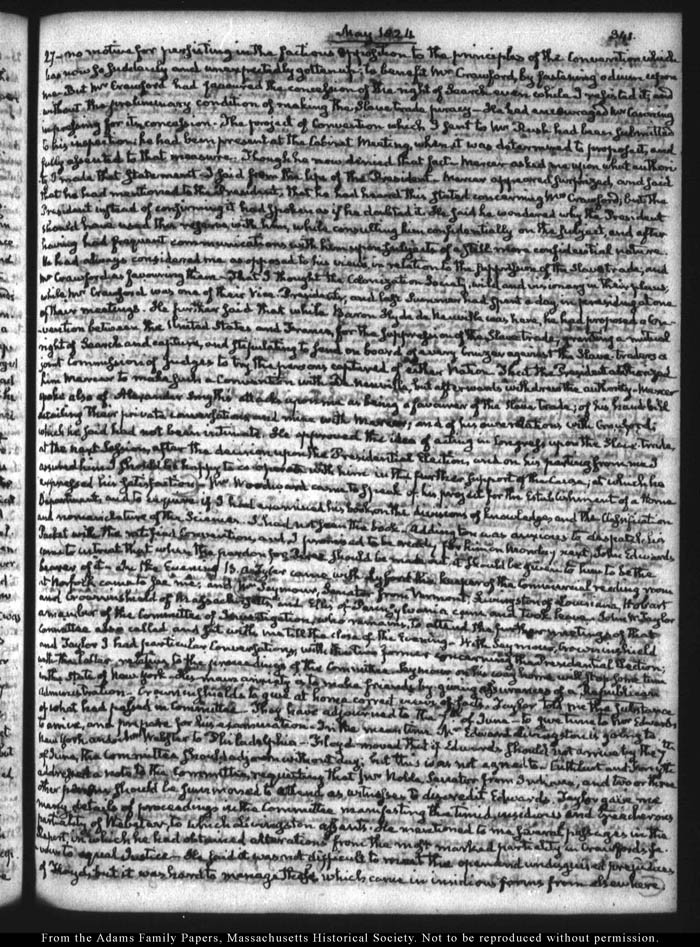 May 1824
341.
27 - no motive for persisting in the factious opposition to the principles of the Convention which
has now so suddenly and unexpectedly gotten up; to benefit Mr Crawford, by fastening odium upon
me. But Mr Crawford had favoured the concession of the right of Search even while I resisted it; and
without the preliminary condition of making the Slave trade piracy. He had encouraged Mr Canning
in pressing for its concession. The project of Convention which I sent to Mr Rush had been submitted
to his inspection; he had been present at the Cabinet Meeting, when it was determined to propose it, and
fully assented to that measure. Though he now denied that fact. Mercer asked me upon what authori-
ty I made that Statement. I said from the lips of the President. Mercer appeared surprized, and said
that he had mentioned to the President, that he had heard this stated concerning Mr Crawford; but the
President instead of confirming it had spoken as if he doubted it. He said he wondered why the President
should have used this reserve with him, while consulting him confidentially on the subject, and after
having had frequent communications with him upon subjects of a still more confidential nature.
He had always considered me as opposed to his views in relation to the suppression of the Slave trade, and
Mr Crawford as favouring them. That I thought the Colonization Society, wild and visionary in their plans;
while Mr Crawford was one of their Vice Presidents, and last Summer had spent a day, in presiding at one
of their meetings. He further said that while Baron Hyde de Neuville was here, he had proposed a Con-
vention between the United States and France, for the suppression of the Slave trade, granting a mutual
right of Search and capture, and stipulating to send on board of every cruizer against the Slave-traders a
joint Commission of Judges to try the persons captured of either Nation. That the President authorized
him Mercer to make such a Convention with De Neuville, but afterwards withdrew the authority. Mercer
spoke also of Alexander Smyth's attack upon me as being a favourer of the Slave trade; of his hand-bill
detailing their private conversations and mine with Mercer; and of his own relations with Crawford;
which he said had not been intimate. He approved the idea of acting in Congress upon the Slave-trade,
at the next Session, after the decision upon the Presidential Election; and on his parting from me I
assured him I should be happy to co-operate with him in the further support of the Cause; at which he
expressed his satisfaction. Mr Woodward came to speak of his project for the Establishment of a Home
Department; and to enquire if I had examined his book on the divisions of knowledge, and the classification
and nomenclature of the Sciences. I had not seen the book. Addington was anxious to despatch his
Packet with the ratified Convention, and I promised to be ready for him on Monday next. John Edwards
came to entreat that when the pardon for should be made out, it should be given to him to be the
bearer of it. In the Evening B. Taylor came with the keeper of the Commercial reading room
at Norfolk came to see me; and Mr Seymour, Senator from Vermont, Livingston of Louisiana, Hobart
and Crowninshield of Massachusetts, and Ellis of Pennsylvania came and took leave. John W. Taylor
a member of the Committee of Investigation, who remains to attend the further meetings of that
Committee also called, and sat with me till the close of the Evening. With Seymour, Crowninshield
and Taylor I had particular Conversations, with the two former concerning the Presidential Election;
with the latter relative to the proceedings of the Committee. Seymour on his way home will stop some time
in the State of New York. His main anxiety is to make friends by giving assurances of a Republican
Administration. Crowninshield to give at home correct views of facts. Taylor told me the substance
of what had passed in Committee. They have adjourned to the of June - to give time to Edwards
to arrive, and prepare for his examination. In the mean time Mr Edward Livingston is going to
New York, and Webster to Philadelphia. Floyd moved that if Edwards should not arrive by the
of June, the Committee should adjourn without day; but this was not agreed to. Cuthbert and Forsyth
addressed a note to the Committee, requesting that Jas Noble, Senator from Indiana, and two or three
other persons should be summoned to attend as witnesses to discredit Edwards. Taylor gave me
many details of proceedings in the Committee manifesting the timid, insidious and treacherous
partiality of Webster, to which Livingston assents. He mentioned to me several passages in the
Report, in which he had obtained alterations from the most marked partiality in Crawford's fa-
vour to equal Justice. He said it was not difficult to meet the open and undisguised prejudices
of Floyd, but it was hard to manage those which came in insidious forms from elsewhere
From the Adams Family Papers, Massachusetts Historical Society. Not to be reproduced without permission.